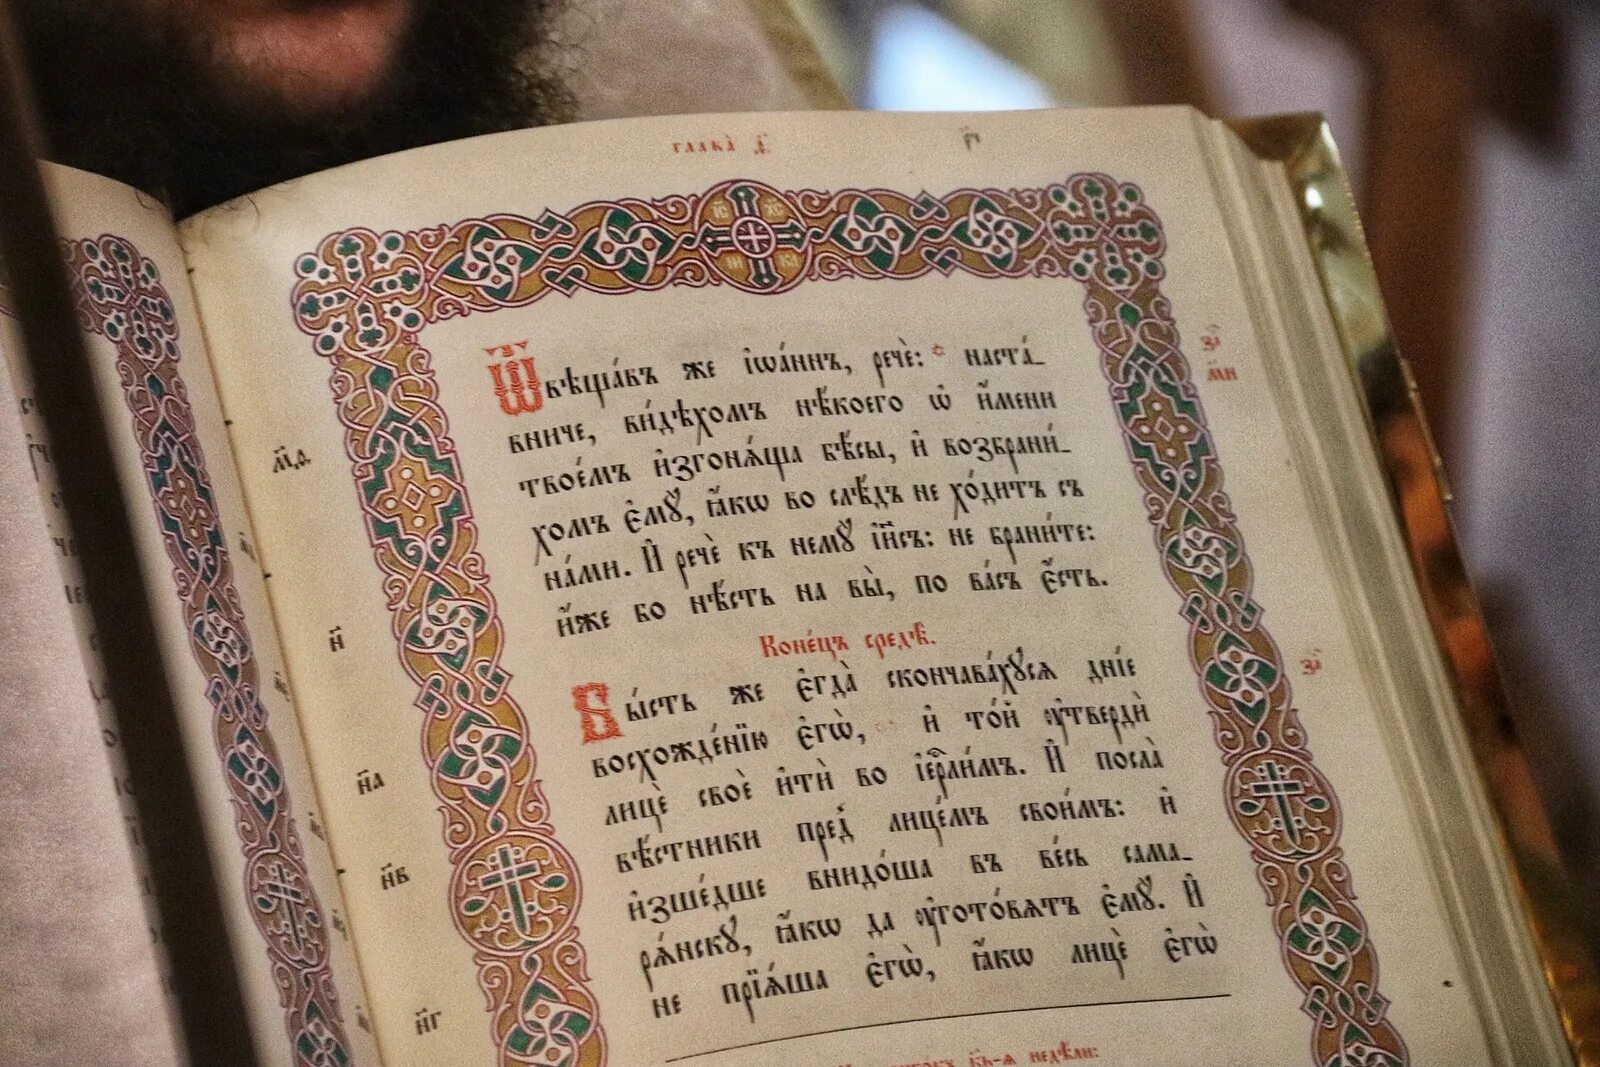 глава̀
Ѿвѣща́въ же іѡа́ннъ, речѐ: * наста́_
вниче, ви́дѣхомъ нѣ́коего ѡ҆ и҆́мени
твое́мъ и҆згонѧ́ща бѣ́сы, и҆ возбрани́_
хомъ є҆мꙋ̀, ꙗ҆́кѡ во слѣ́дъ не хо́дитъ съ
на́ми. И҆ речѐ къ немꙋ̀ і҆и҃съ: не брани́те:
и҆́же бо нѣ́сть на вы̀, по ва́съ є҆́сть.
Коне́цъ средѣ̀.
Бы́сть же є҆гда̀ скончава́хꙋсѧ дні́е
восхожде́нїю є҆гѡ̀, и҆ то́й ᲂу҆твердѝ
лицѐ своѐ и҆тѝ во і҆ерⷭ҇ли́мъ. И҆ посла̀
вѣ́стники пред̾ лице́мъ свои́мъ: и҆
и҆зше́дше внидо́ша въ ве́сь сама_
рѧ́нскꙋ, ꙗ҆́кѡ да ᲂу҆гото́вѧтъ є҆мꙋ̀. И҆
не прїѧ́ша є҆гѡ̀, ꙗ҆́кѡ лицѐ є҆гѡ̀
м҃д
н҃
н҃а
н҃в
н҃г
за҃
м҃и
за҃
недѣ́ли: